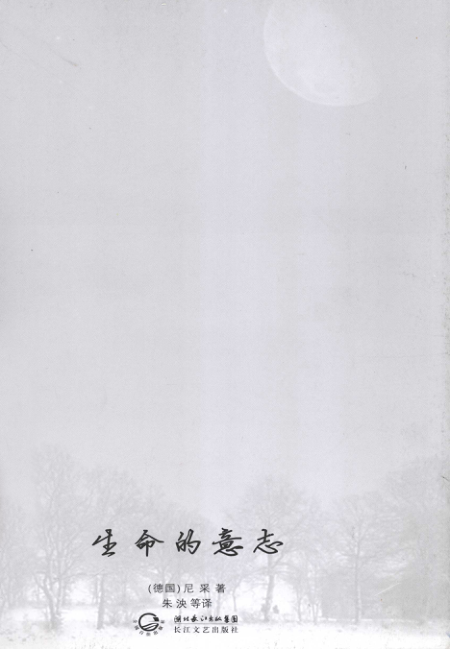 生命的意志
(德国)尼采著
朱泱等译
湖北长江出版集团
长江文艺出版社